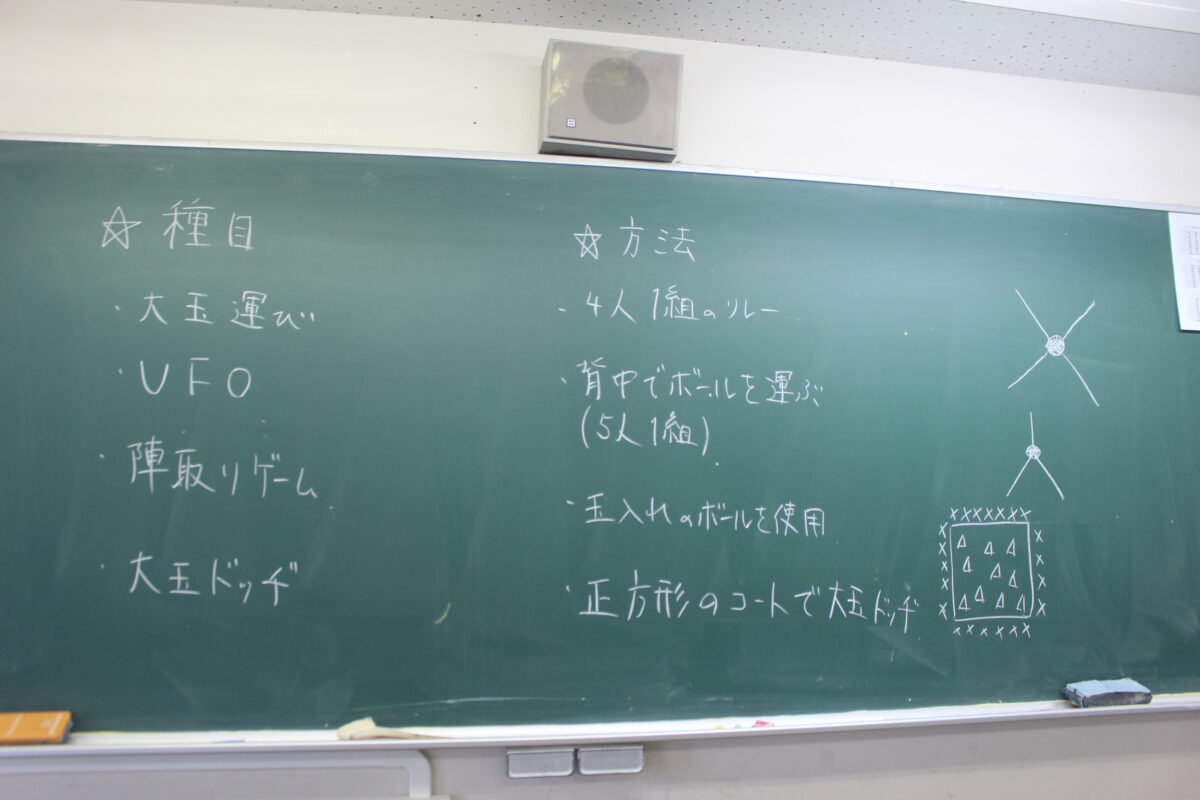 ☆ 種目
・大玉運び
・UFO
・陣取りゲーム
・大玉ドッヂ
☆ 方法
・4人1組のリレー
・背中でボールを運ぶ
(5人1組)
・玉入れのボールを使用
・正方形のコートで大玉ドッヂ